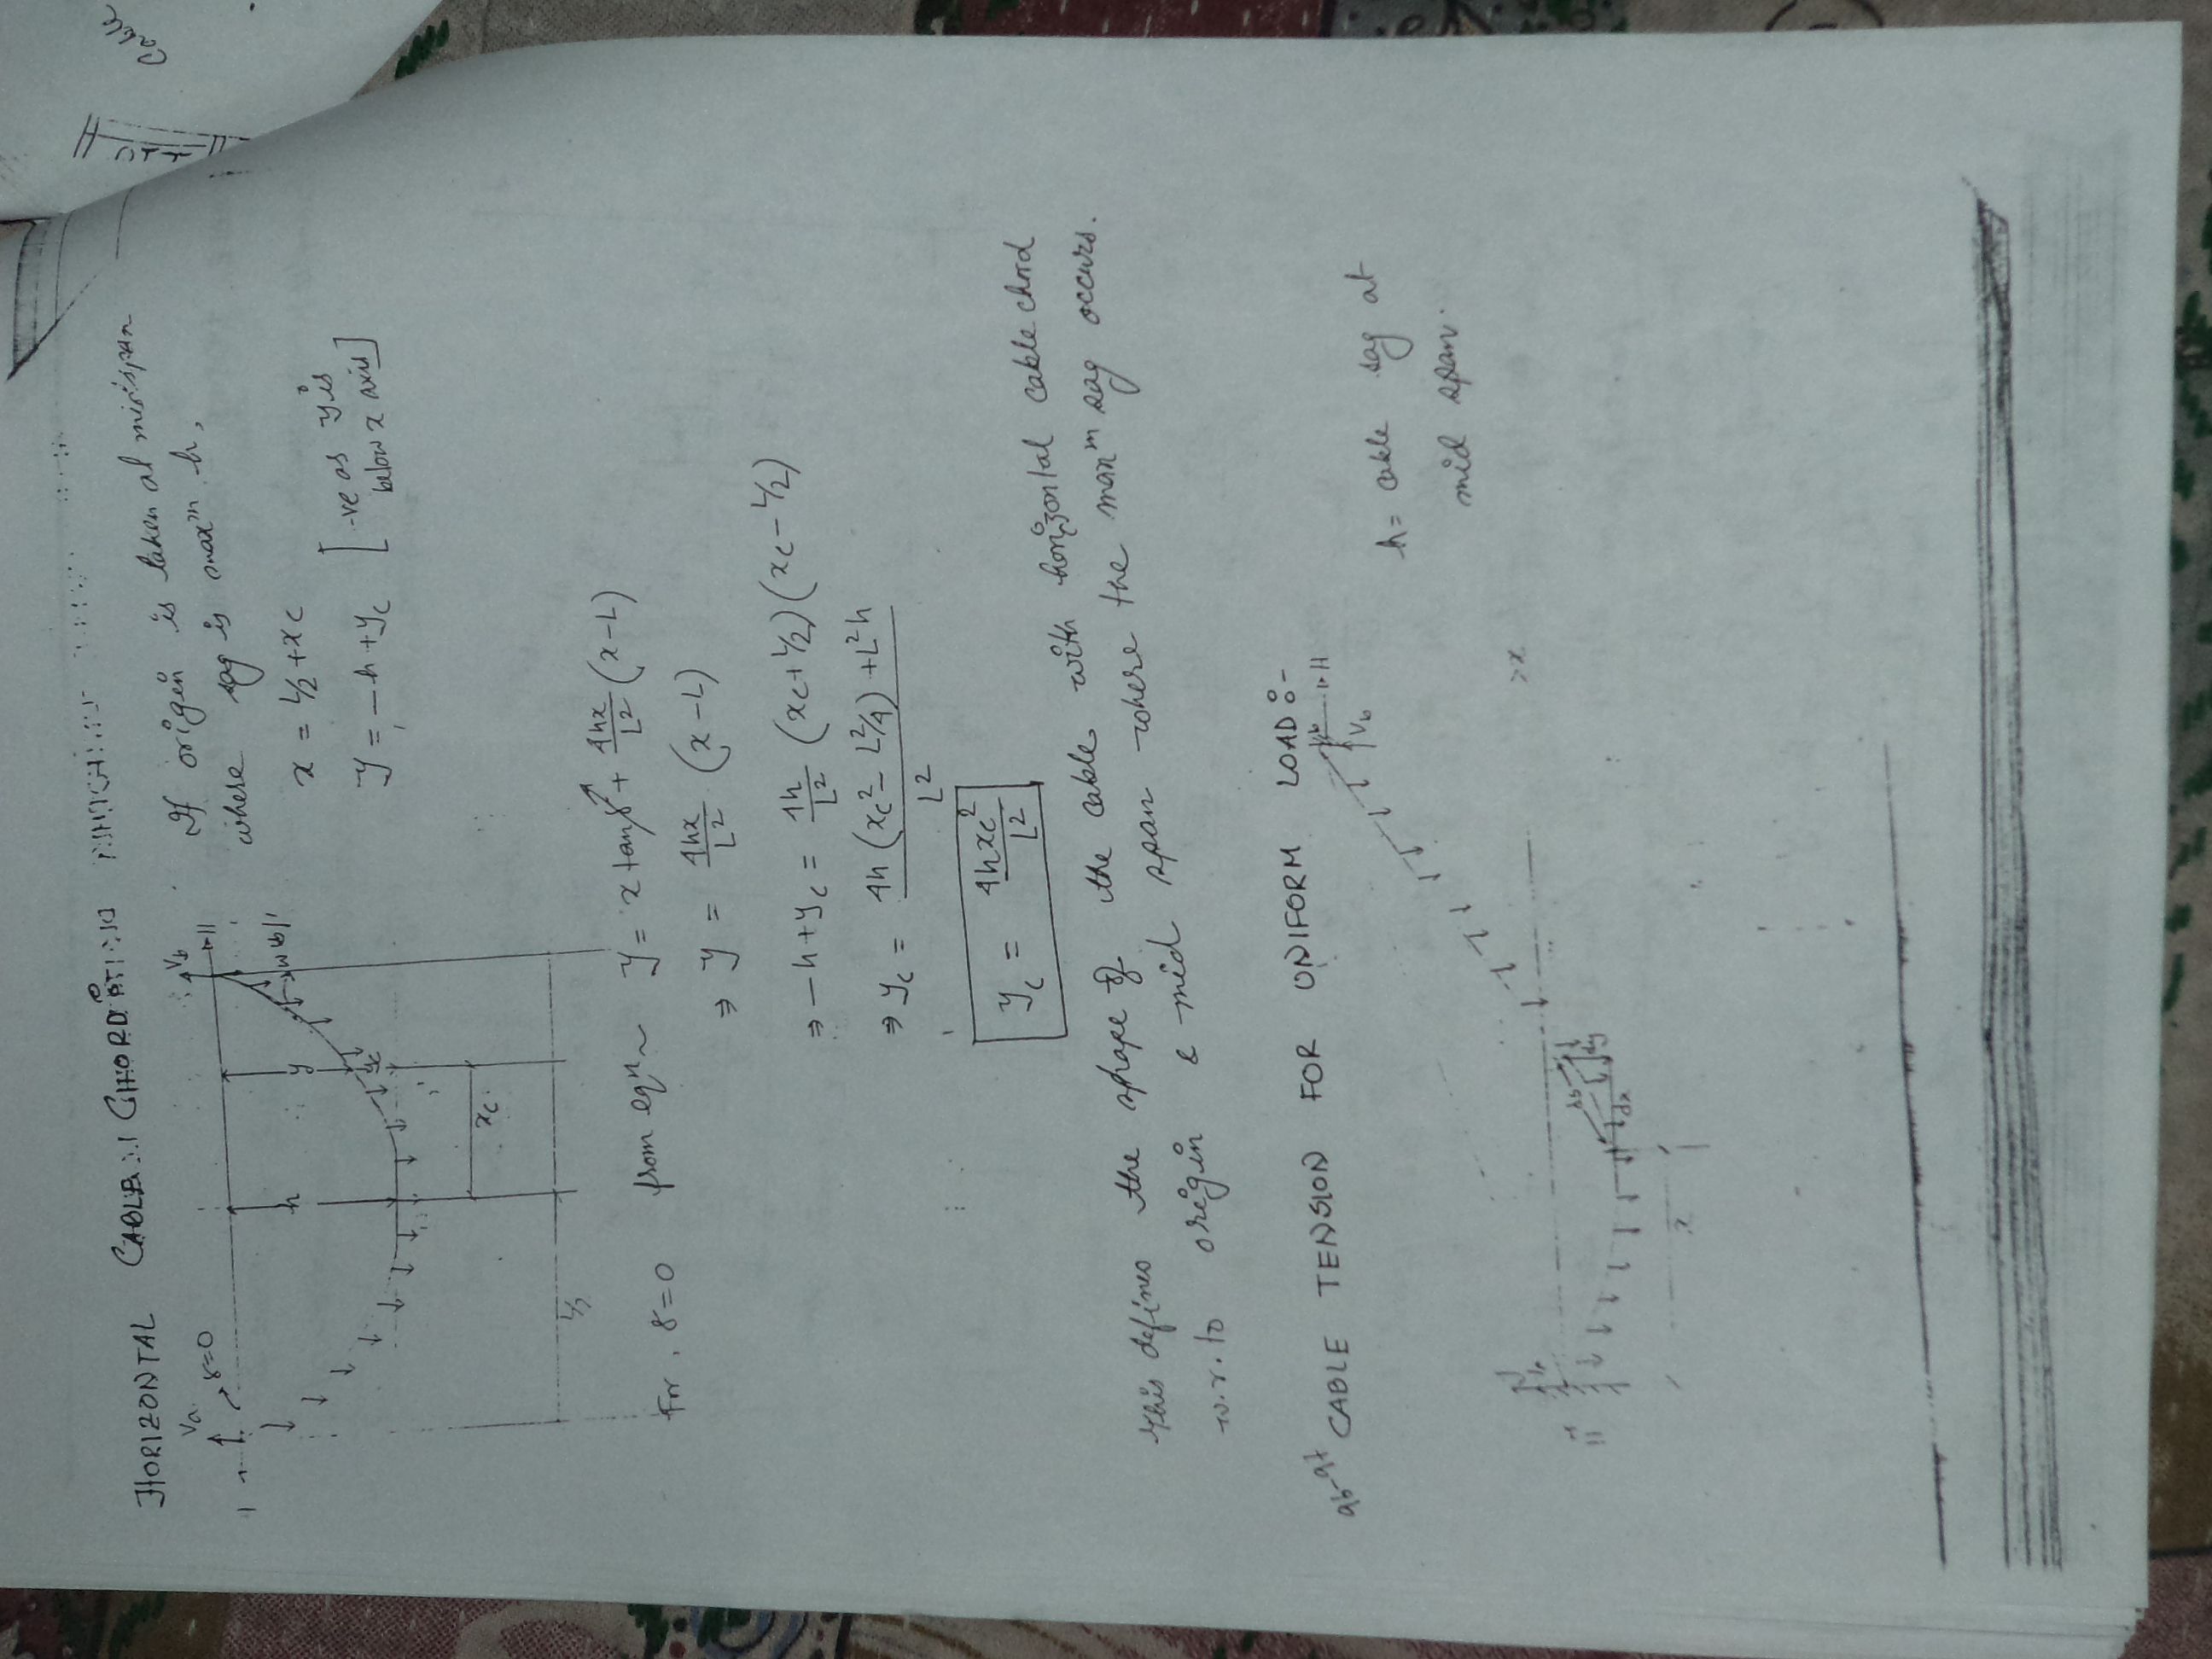 HORIZONTAL CABLE CHORD
Va
γ=0
Vb
h
y
yc
xc
If origin is taken at midspan
where sag is maxᵐ h,
x = L/2 + xc
y = -h + yc [-ve as y is
below x axis]
For, γ=0 from eqⁿ~ y = x tanγ + 4hx/L² (x-L)
⇒ y = 4hx/L² (x-L)
⇒ -h + yc = 4h/L² (xc + L/2)(xc - L/2)
⇒ yc = 4h (xc² - L²/4) + L²h / L²
yc = 4hxc²/L²
This defines the shape of the cable with horizontal cable chord
w.r.to origin & mid span where the maxᵐ sag occurs.
CABLE TENSION FOR UNIFORM LOAD:-
Vb
H
h = cable sag at
mid span.
ds
dy
dx
x